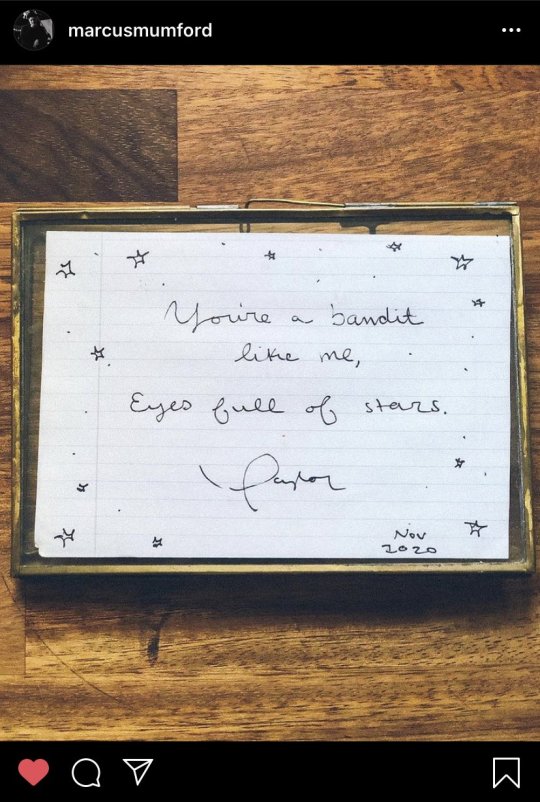 marcusmumford
You're a bandit
like me,
Eyes full of stars.
Taylor
Nov
2020